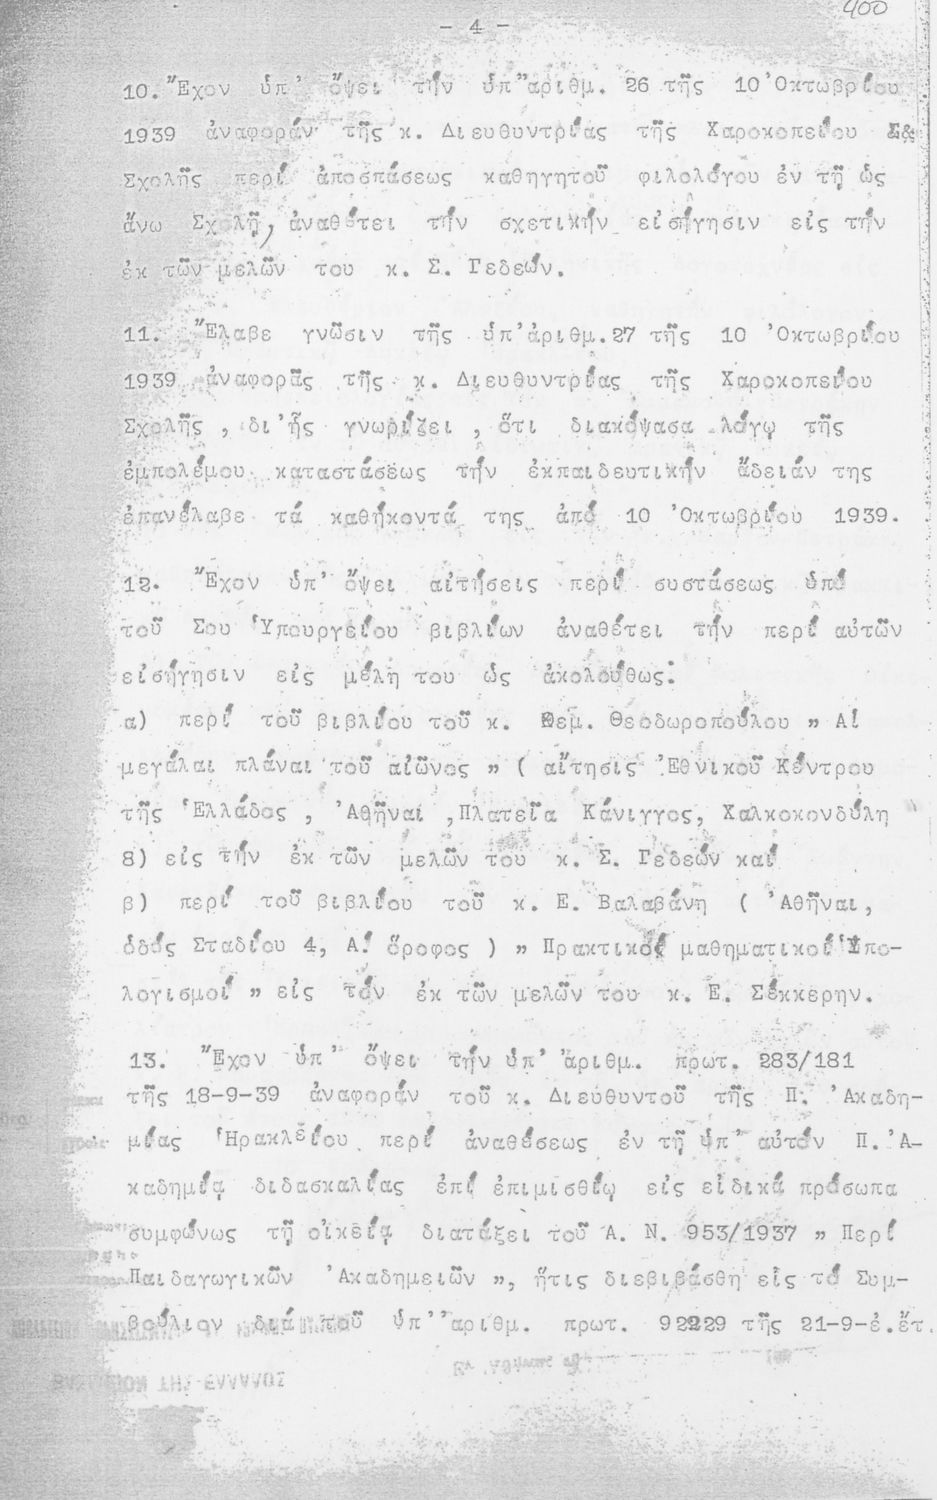 400
- 4 -
10. Ἔχον ὑπ' ὄψει τήν ὑπ' ἀριθμ. 26 τῆς 10 Ὀκτωβρίου
1939 ἀναφοράν τῆς κ. Διευθυντρίας τῆς Χαροκοπείου
Σχολῆς περί ἀποσπάσεως καθηγητοῦ φιλολόγου ἐν τῇ ὡς
ἄνω Σχολῇ, ἀναθέτει τήν σχετικήν εἰσήγησιν εἰς τήν
ἐκ τῶν μελῶν του κ. Σ. Γεδεών.
11. Ἔλαβε γνῶσιν τῆς ὑπ' ἀριθμ.27 τῆς 10 Ὀκτωβρίου
1939 ἀναφορᾶς τῆς κ. Διευθυντρίας τῆς Χαροκοπείου
Σχολῆς , δι' ἧς γνωρίζει , ὅτι διακόψασα λόγῳ τῆς
ἐμπολέμου καταστάσεως τήν ἐκπαιδευτικήν ἄδειάν της
ἐπανέλαβε τά καθήκοντά της ἀπό 10 Ὀκτωβρίου 1939.
12. Ἔχον ὑπ' ὄψει αἰτήσεις περί συστάσεως ὑπό
τοῦ Σου Ὑπουργείου βιβλίων ἀναθέτει τήν περί αὐτῶν
εἰσήγησιν εἰς μέλη του ὡς ἀκολούθως:
α) περί τοῦ βιβλίου τοῦ κ. Δεμ. Θεοδωροπούλου " Αἱ
μεγάλαι πλάναι τοῦ αἰῶνος " ( αἴτησις Ἐθνικοῦ Κέντρου
τῆς Ἑλλάδος , Ἀθῆναι ,Πλατεῖα Κάνιγγος, Χαλκοκονδύλη
8) εἰς τήν ἐκ τῶν μελῶν του κ. Σ. Γεδεών καί
β) περί τοῦ βιβλίου τοῦ κ. Ε. Βαλαβάνη ( Ἀθῆναι,
ὁδός Σταδίου 4, Α! ὄροφος ) " Πρακτικοί μαθηματικοί Ὑπο-
λογισμοί " εἰς τόν ἐκ τῶν μελῶν του κ. Ε. Σέκκερην.
13. Ἔχον ὑπ' ὄψει τήν ὑπ' ἀριθμ. πρωτ. 283/181
τῆς 18-9-39 ἀναφοράν τοῦ κ. Διευθυντοῦ τῆς Π. Ἀκαδη-
μίας Ἡρακλείου περί ἀναθέσεως ἐν τῇ ὑπ' αὐτόν Π. Ἀ-
καδημίᾳ διδασκαλίας ἐπί ἐπιμισθίῳ εἰς εἰδικά πρόσωπα
συμφώνως τῇ οἰκείᾳ διατάξει τοῦ Ἀ. Ν. 953/1937 " Περί
Παιδαγωγικῶν Ἀκαδημειῶν ", ἥτις διεβιβάσθη εἰς τό Συμ-
βούλιον διά τοῦ ὑπ' ἀριθμ. πρωτ. 92229 τῆς 21-9-ἐ.ἔτ.